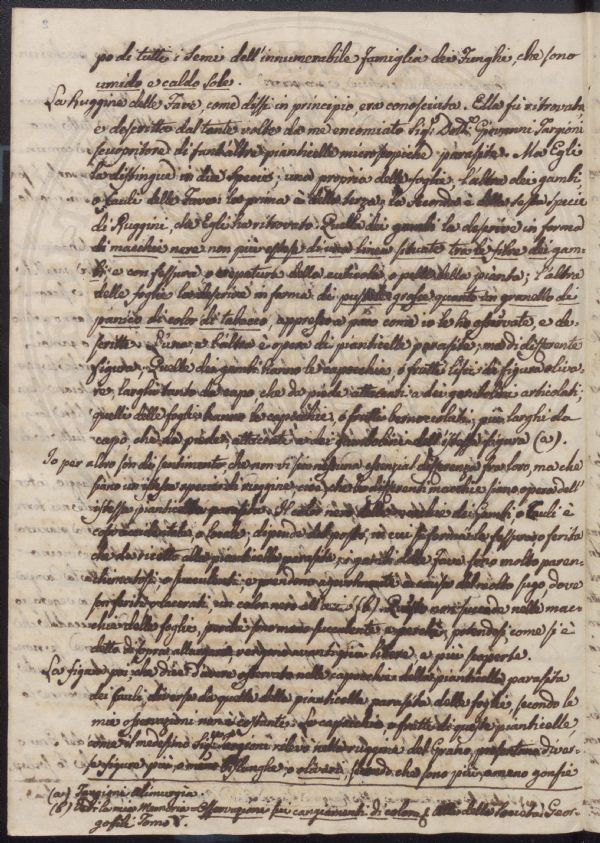 po di tutti i semi dell'innumerabile famiglia dei Funghi, che sono
umido, e caldo sole.
La Ruggine delle Fave, come dissi in principio, era conosciuta. Ella fù ritrovata,
e descritta dal tante volte da me encomiato Sig.r Dott.r Giovanni Targioni
scuopritore di tant'altre pianticelle microscopiche parasite. Ma Egli
la distingue in due specie; una propria delle foglie, l'altra dei gambi,
o fauli delle Fave: la prima è della terza; la seconda è della sesta specie
di Ruggini, che Egli ha ritrovato. Quella dei gambi la descrive in forma
di macchie nere non più estese di una linea situate tra le fibre dei gam-
bi e con fessura, o crepatura della cuticola, o pelle della pianta; l'altra
delle foglie la descrive in forma di pustole grosse quanto un granello di
panico di color di tabacco, appresso a poco come io le ho osservate, e de-
scritte. L'una, e l'altra è opera di pianticelle parasite; ma di differente
figura. Quelle dei gambi hanno le capocchie, o frutti lisci di figura oliva-
re, larghi tanto da capo, che da piede attaccati a dei gambolini articolati;
quelle delle foglie hanno le capocchie, o frutti bernoccolati, più larghi da
capo, che da piede, attaccate a dei gambolini dell'istessa figura (a).
Io per altro son di sentimento, che non vi sia nessuna essenzial differenza fra loro, ma che
siano un istessa specie di ruggine, cioè, che le differenti macchie siano opera dell'
istessa pianticella parasita. Il color nero delle macchie dei gambi, o fauli è
cosa accidentale, o locale; dipende dal posto, in cui si forma la fessura, o ferita
che da ricetto alla pianticella parasita; i gambi delle Fave sono molto paren-
chimatosi, o succulenti, e prendono a causa del molto sugo dove
son feriti, o lacerati, un color nero all'aria (b). Questo non succede nelle mac-
chie delle foglie, perchè sono meno succulente, e perchè, potendosi come si è
detto di sopra, allargare, vengono a restar più libere, e più scoperte.
La figura poi, che dice d'avere osservata nelle capocchie delle pianticelle parasita
dei fauli, diversa da quella delle pianticelle parasita delle foglie, secondo le
mie osservazioni non è costante. Le capocchie, o frutti di queste pianticelle
come il medesimo Sig.r Targioni rilevò nella ruggine del Grano, presentano diver-
se figure più o meno bislunghe, o olivari, secondo, che sono più, o meno gonfie
(a) Targioni Alimurgia.
(b) Vedi la mia Memoria = Osservazioni sui cangiamenti di colore &. Atti della Società dei Geor-
gofili Tomo V.